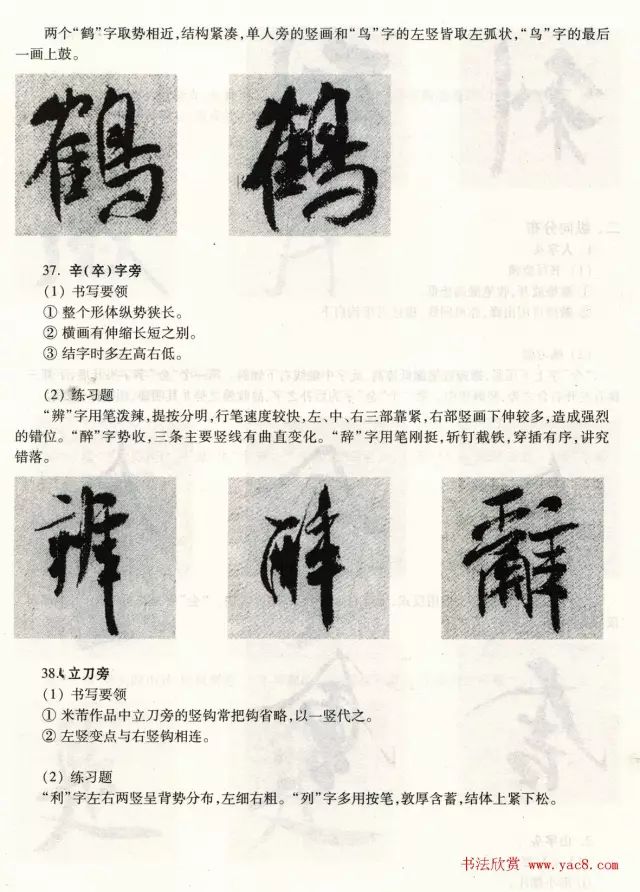 两个“鹤”字取势相近,结构紧凑,单人旁的竖画和“鸟”字的左竖皆取左弧状,“鸟”字的最后
一画上鼓。
鹤 鹤
37. 辛(卒)字旁
(1) 书写要领
① 整个形体纵势狭长。
② 横画有伸缩长短之别。
③ 结字时多左高右低。
(2) 练习题
“辨”字用笔泼辣,提按分明,行笔速度较快,左、中、右三部靠紧,右部竖画下伸较多,造成强烈
的错位。“醉”字势收,三条主要竖线有曲直变化。“辞”字用笔刚挺,斩钉截铁,穿插有序,讲究
错落。
辨 醉 辭
38. 立刀旁
(1) 书写要领
① 米芾作品中立刀旁的竖钩常把钩省略,以一竖代之。
② 左竖变点与右竖钩相连。
(2) 练习题
“利”字左右两竖呈背势分布,左细右粗。“列”字多用按笔,敦厚含蓄,结体上紧下松。
书法欣赏 www.yac8.com